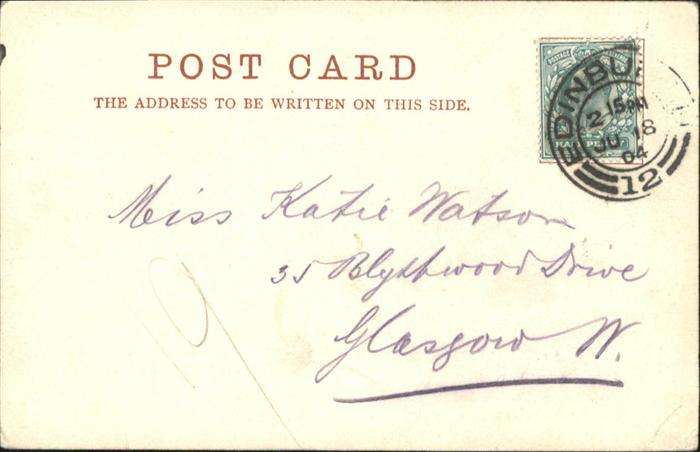 POST CARD
THE ADDRESS TO BE WRITTEN ON THIS SIDE.
EDINBU
2-15PM
18
04
12
HALFPENNY
Miss Katie Watson
35 Blythswood Drive
Glasgow W.